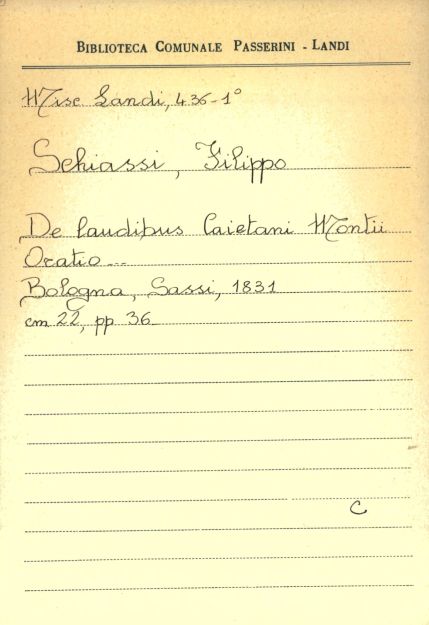 BIBLIOTECA COMUNALE PASSERINI - LANDI
Misc Landi, 436-1°
Schiassi, Filippo
De laudibus Caietani Montii
Oratio...
Bologna, Sassi, 1831
cm 22, pp 36
C